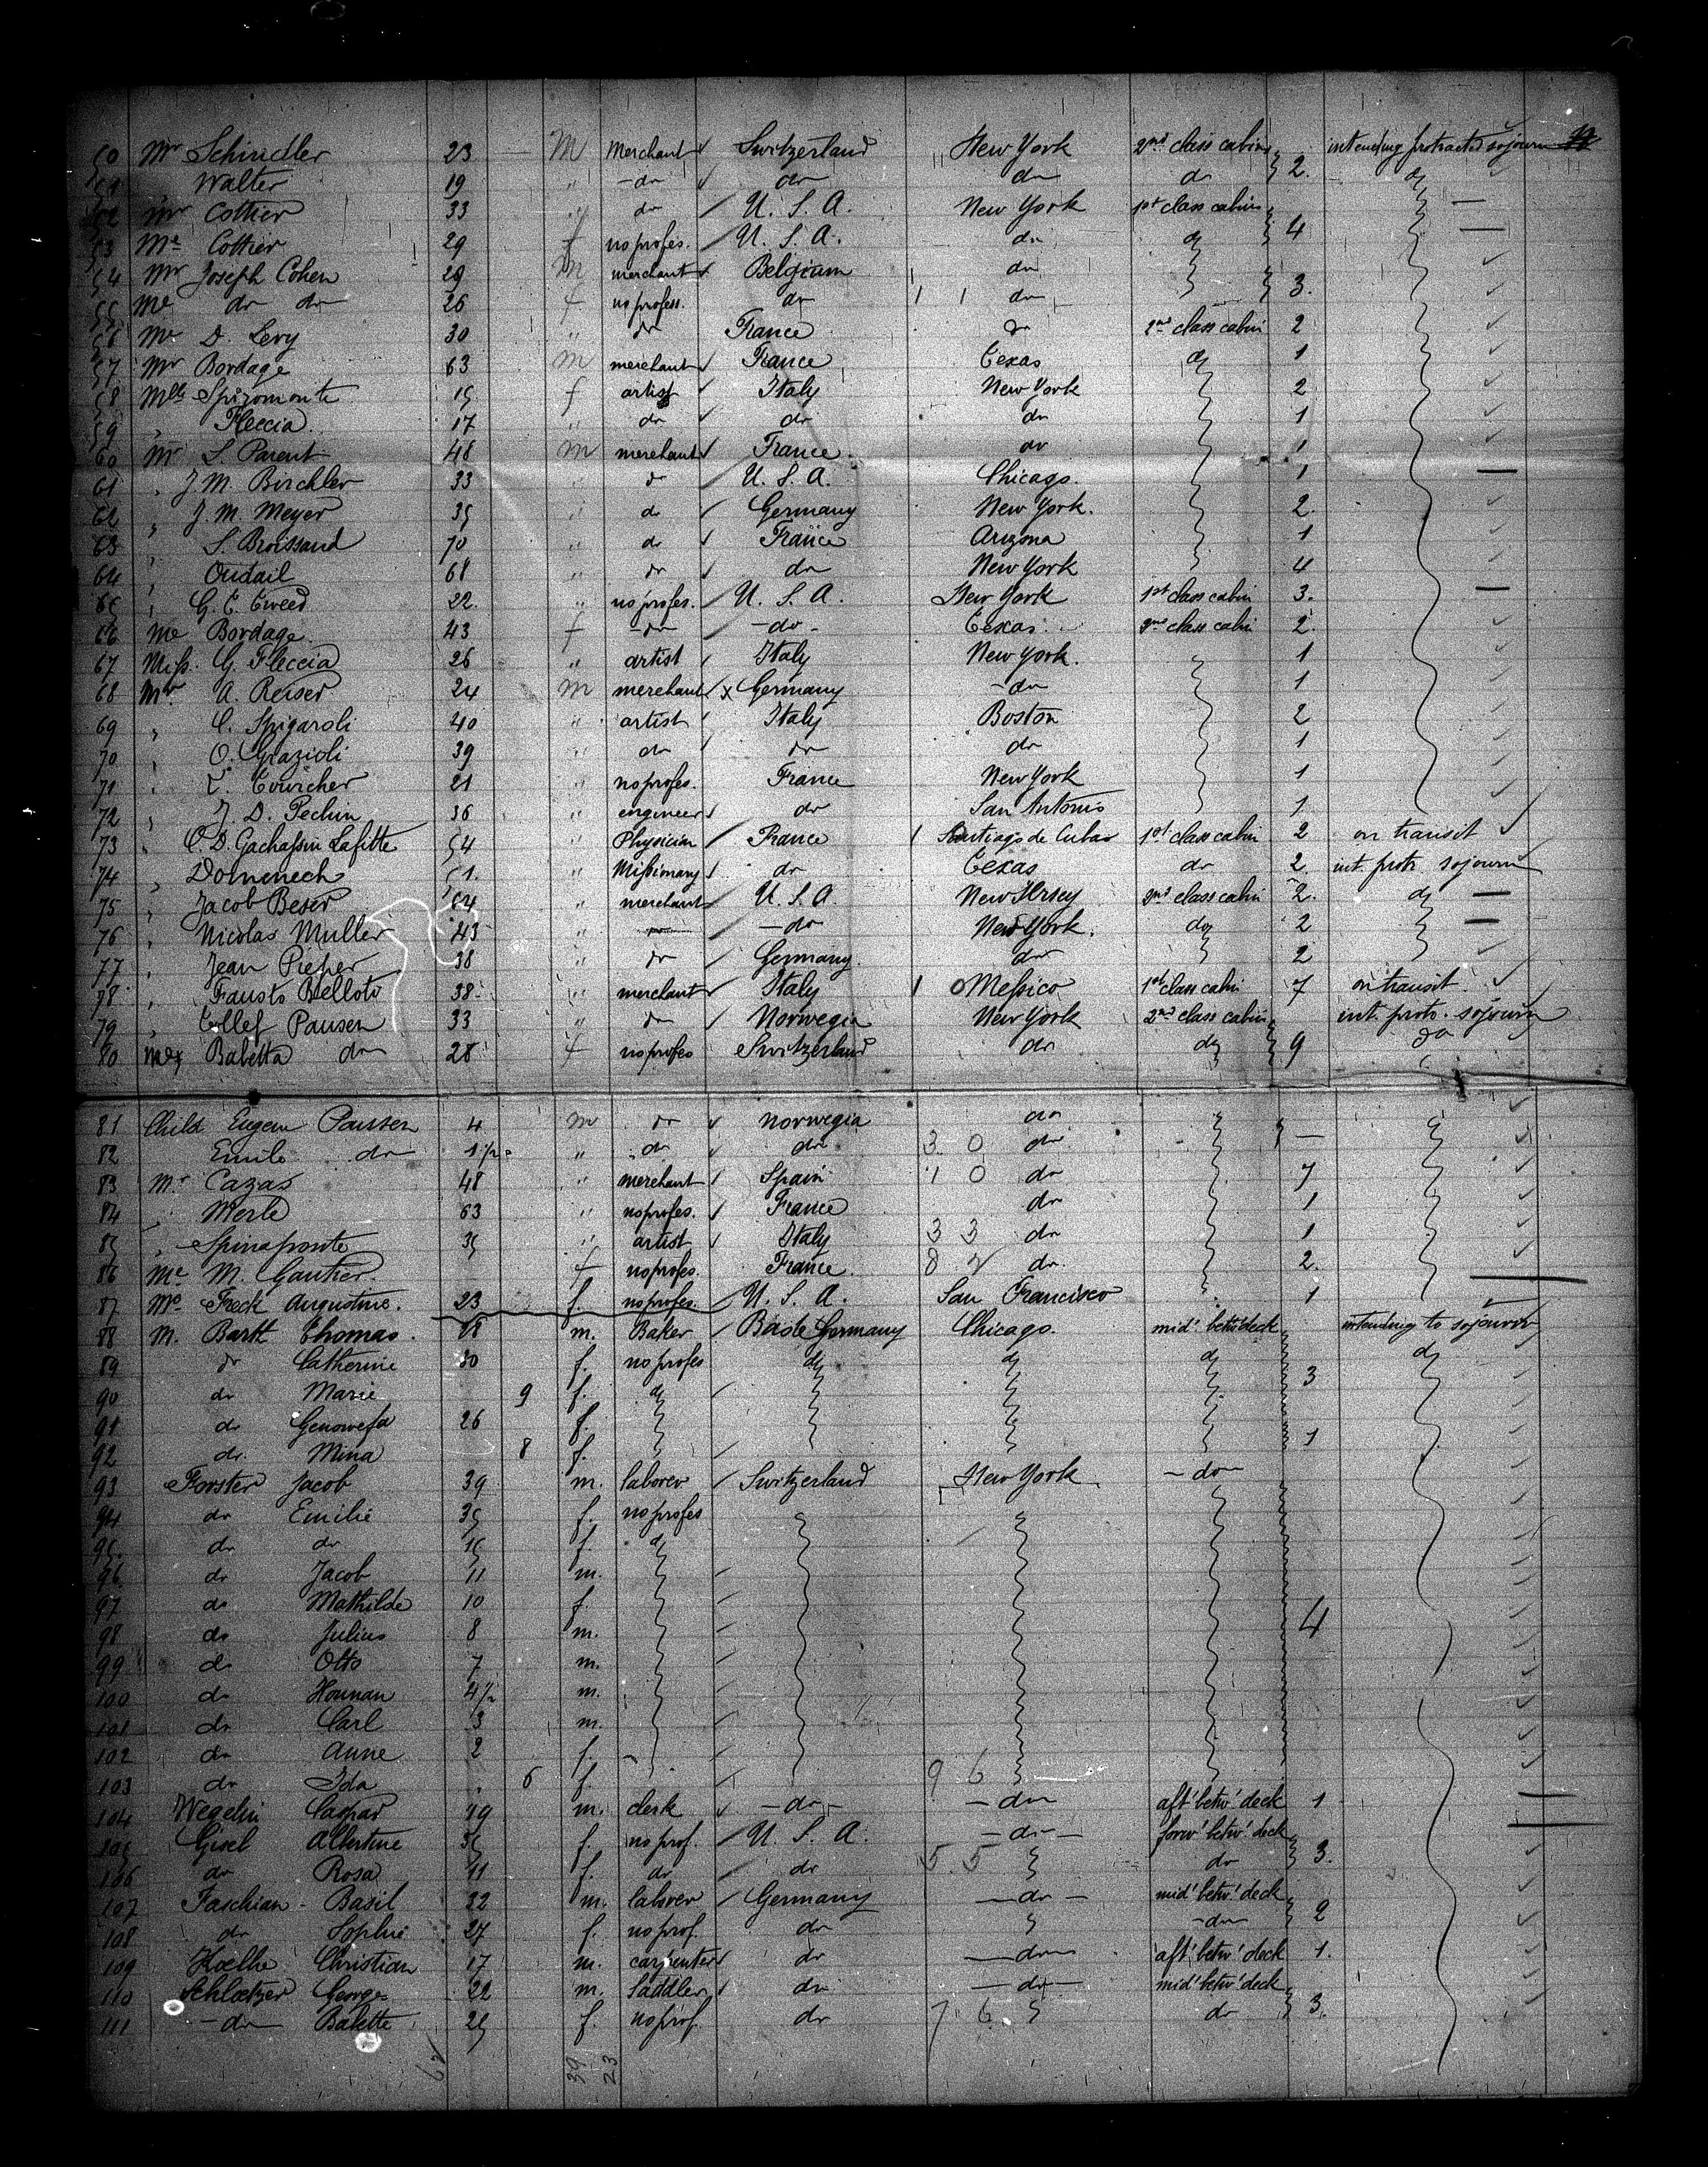 50 Mr Schindler 23 M Merchant Switzerland New York 2nd class cabin 2. intending protracted sojourn
Walter 19 " do do do do do
52 Mr Cottier 33 " do U. S. A. New York 1st class cabin
53 Me Cottier 29 f no profes. U. S. A. do do 4
54 Mr Joseph Cohen 29 m merchant Belgium do
55 Me do do 26 f no profess. do do 3.
56 Me D. Levy 30 " do France do 2nd class cabin 2
57 Mr Bordage 63 m merchant France Texas do 1
58 Mlle Spiromonte 15 f artist Italy New York 2
59 " Fleccia. 17 " do do do 1
60 Mr S Parent 48 m merchant France do 1
61 " J. M. Birchler 33 " do U. S. A. Chicago. 1
62 " J. M. Meyer 35 " do Germany New York. 2.
63 " S. Broissand 70 " do France Arizona 1
64 " Oudail 68 " do do New York 4
65 " G. E. Tweed 22. " no profes. U. S. A. New York 1st class cabin 3.
66 Me Bordage. 43 f do do Texas. 2nd class cabin 2.
67 Miss. G. Fleccia 26 " artist Italy New York. 1
68 Mr. A. Reiser 24 m merchant x Germany do 1
69 " C. Spigaroli 40 " artist Italy Boston 2
70 " O. Grazioli 39 " do do do 1
71 " T. Touvcher 21 " no profes. France New York 1
72 " J. D. Pechin 36 " engineer do San Antonio 1
73 " C D. Gachassin Lafitte 54 " Physician France Santiago de Cuba 1st class cabin 2 on transit
74 " Domenech 51. " Missionary do Texas do 2. int. protr. sojourn
75 " Jacob Beser 54 " merchant U. S. A. New Jersey 2nd class cabin 2. do
76 " Nicolas Muller 43 " do New York. do 2
77 " Jean Pieper 38 " do Germany. do 2
78 " Fausto Belloto 38 " merchant Italy 1 0 Messico 1st class cabin 7 on transit.
79 " Tollef Pausen 33 " do Norwegia New York 2nd class cabin int. protr. sojourn
80 Me Babetta do 28 f no profes Switzerland do do 9 do
81 Child Eugen Pausen 4 m do Norwegia do
82 Emile do 1 1/2 " do do 3 0 do
83 Mr Cazas 48 " merchant Spain 1 0 do 7
84 " Merle 63 " no profes. France do 1
85 " Spinaponte 35 " artist Italy 3 3 do 1
86 Me M. Gautier. f no profes. France. 8 2 do. 2.
87 Me Freck Augustine. 23 f. no profes. U. S. A. San Francisco 1
88 M. Barth Thomas. 28 m. Baker Bade Germany Chicago. mid' betw' deck intending to sojourn
89 do Catherine 30 f. no profes do do do 3 do
90 do Marie 9 f. do
91 do Genowefa 26 f.
92 do. Mina 8 f. 1
93 Forster Jacob 39 m. laborer Switzerland New York do
94 do Emilie 35 f. no profes
95. do do 15 f. do
96 do Jacob 11 m.
97 do Mathilde 10 f.
98 do Julius 8 m. 4
99 do Otto 7 m.
100 do Hounan 4 1/2 m.
101 do Carl 3 m.
102 do Anne 2 f.
103 do Ida 6 f. 9 6
104 Wegelin Caspar 49 m. clerk do do aft' betw' deck 1
105 Gisel Albertine 35 f. no prof. U. S. A. do forw' betw' deck
106 do Rosa 11 f. do do 5. 5 do 3.
107 Faschian - Basil 32 m. laborer Germany do mid' betw' deck
108 do Sophie 27 f. no prof. do do 2
109 Koelhe Christian 17 m. carpenter do do aft' betw' deck 1.
110 Schloetzer George 22 m. Saddler do do mid' betw' deck
111 do Babette 25 f. no prof. do 7 6 do 3.
62 39 23